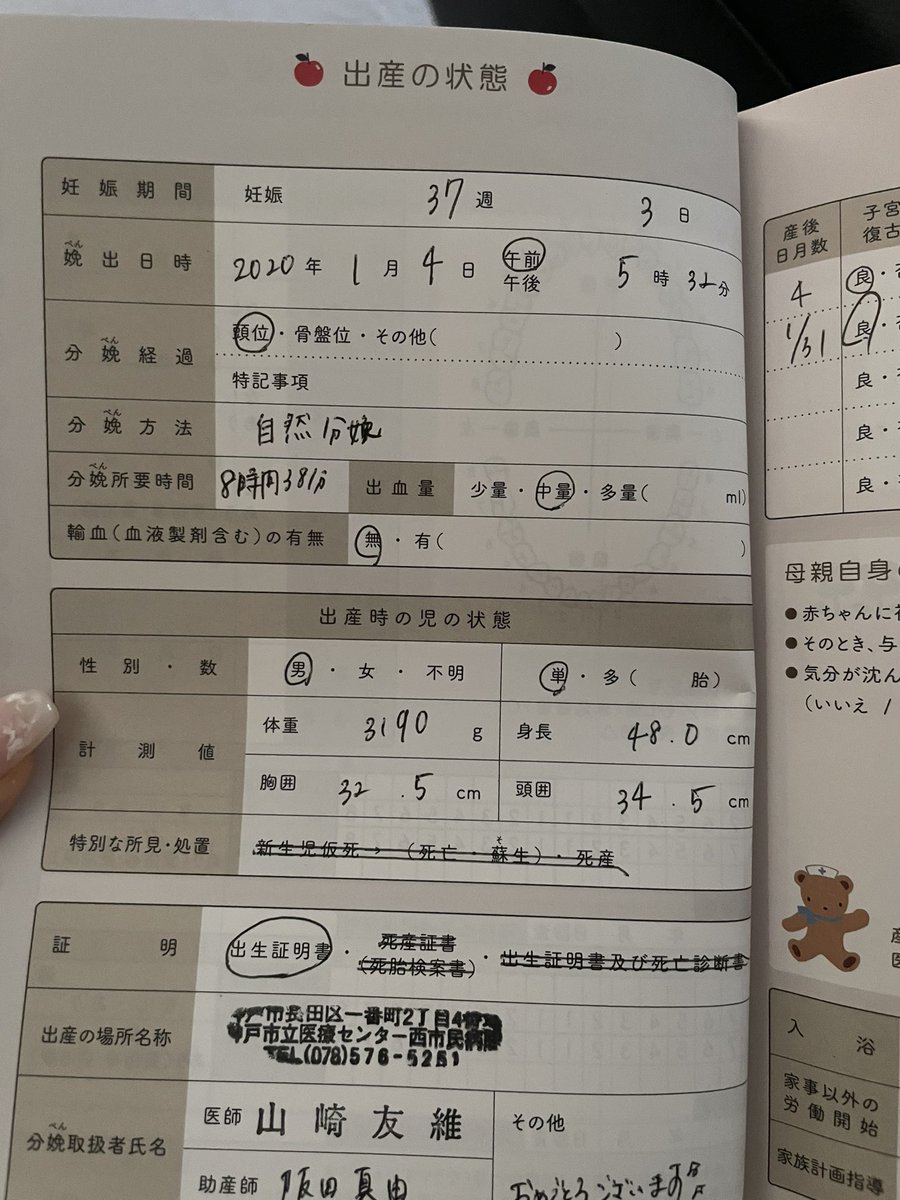 出産の状態
妊娠期間 妊娠 37週 3日
娩出日時 2020年 1月 4日 午前 午後 5時 32分
分娩経過 頭位・骨盤位・その他( )
特記事項
分娩方法 自然分娩
分娩所要時間 8時間38分 出血量 少量・中量・多量( ml)
輸血(血液製剤含む)の有無 無・有( )
出産時の児の状態
性別・数 男・女・不明 単・多( 胎)
計測値 体重 3190 g 身長 48.0 cm
胸囲 32.5 cm 頭囲 34.5 cm
特別な所見・処置 新生児仮死→(死亡・蘇生)・死産
証明 出生証明書・死産証書(死胎検案書)・出生証明書及び死亡診断書
出産の場所名称 神戸市長田区一番町2丁目4番地
神戸市立医療センター西市民病院
TEL(078)576-5251
分娩取扱者氏名 医師 山崎友維 その他
助産師 阪田真由 おめでとうございます
産後日月数 子宮復古
4 良・
1/31 良・
良・
良・
良・
母親自身の
●赤ちゃんに
●そのとき、与
●気分が沈ん
(いいえ /
入浴
家事以外の労働開始
家族計画指導